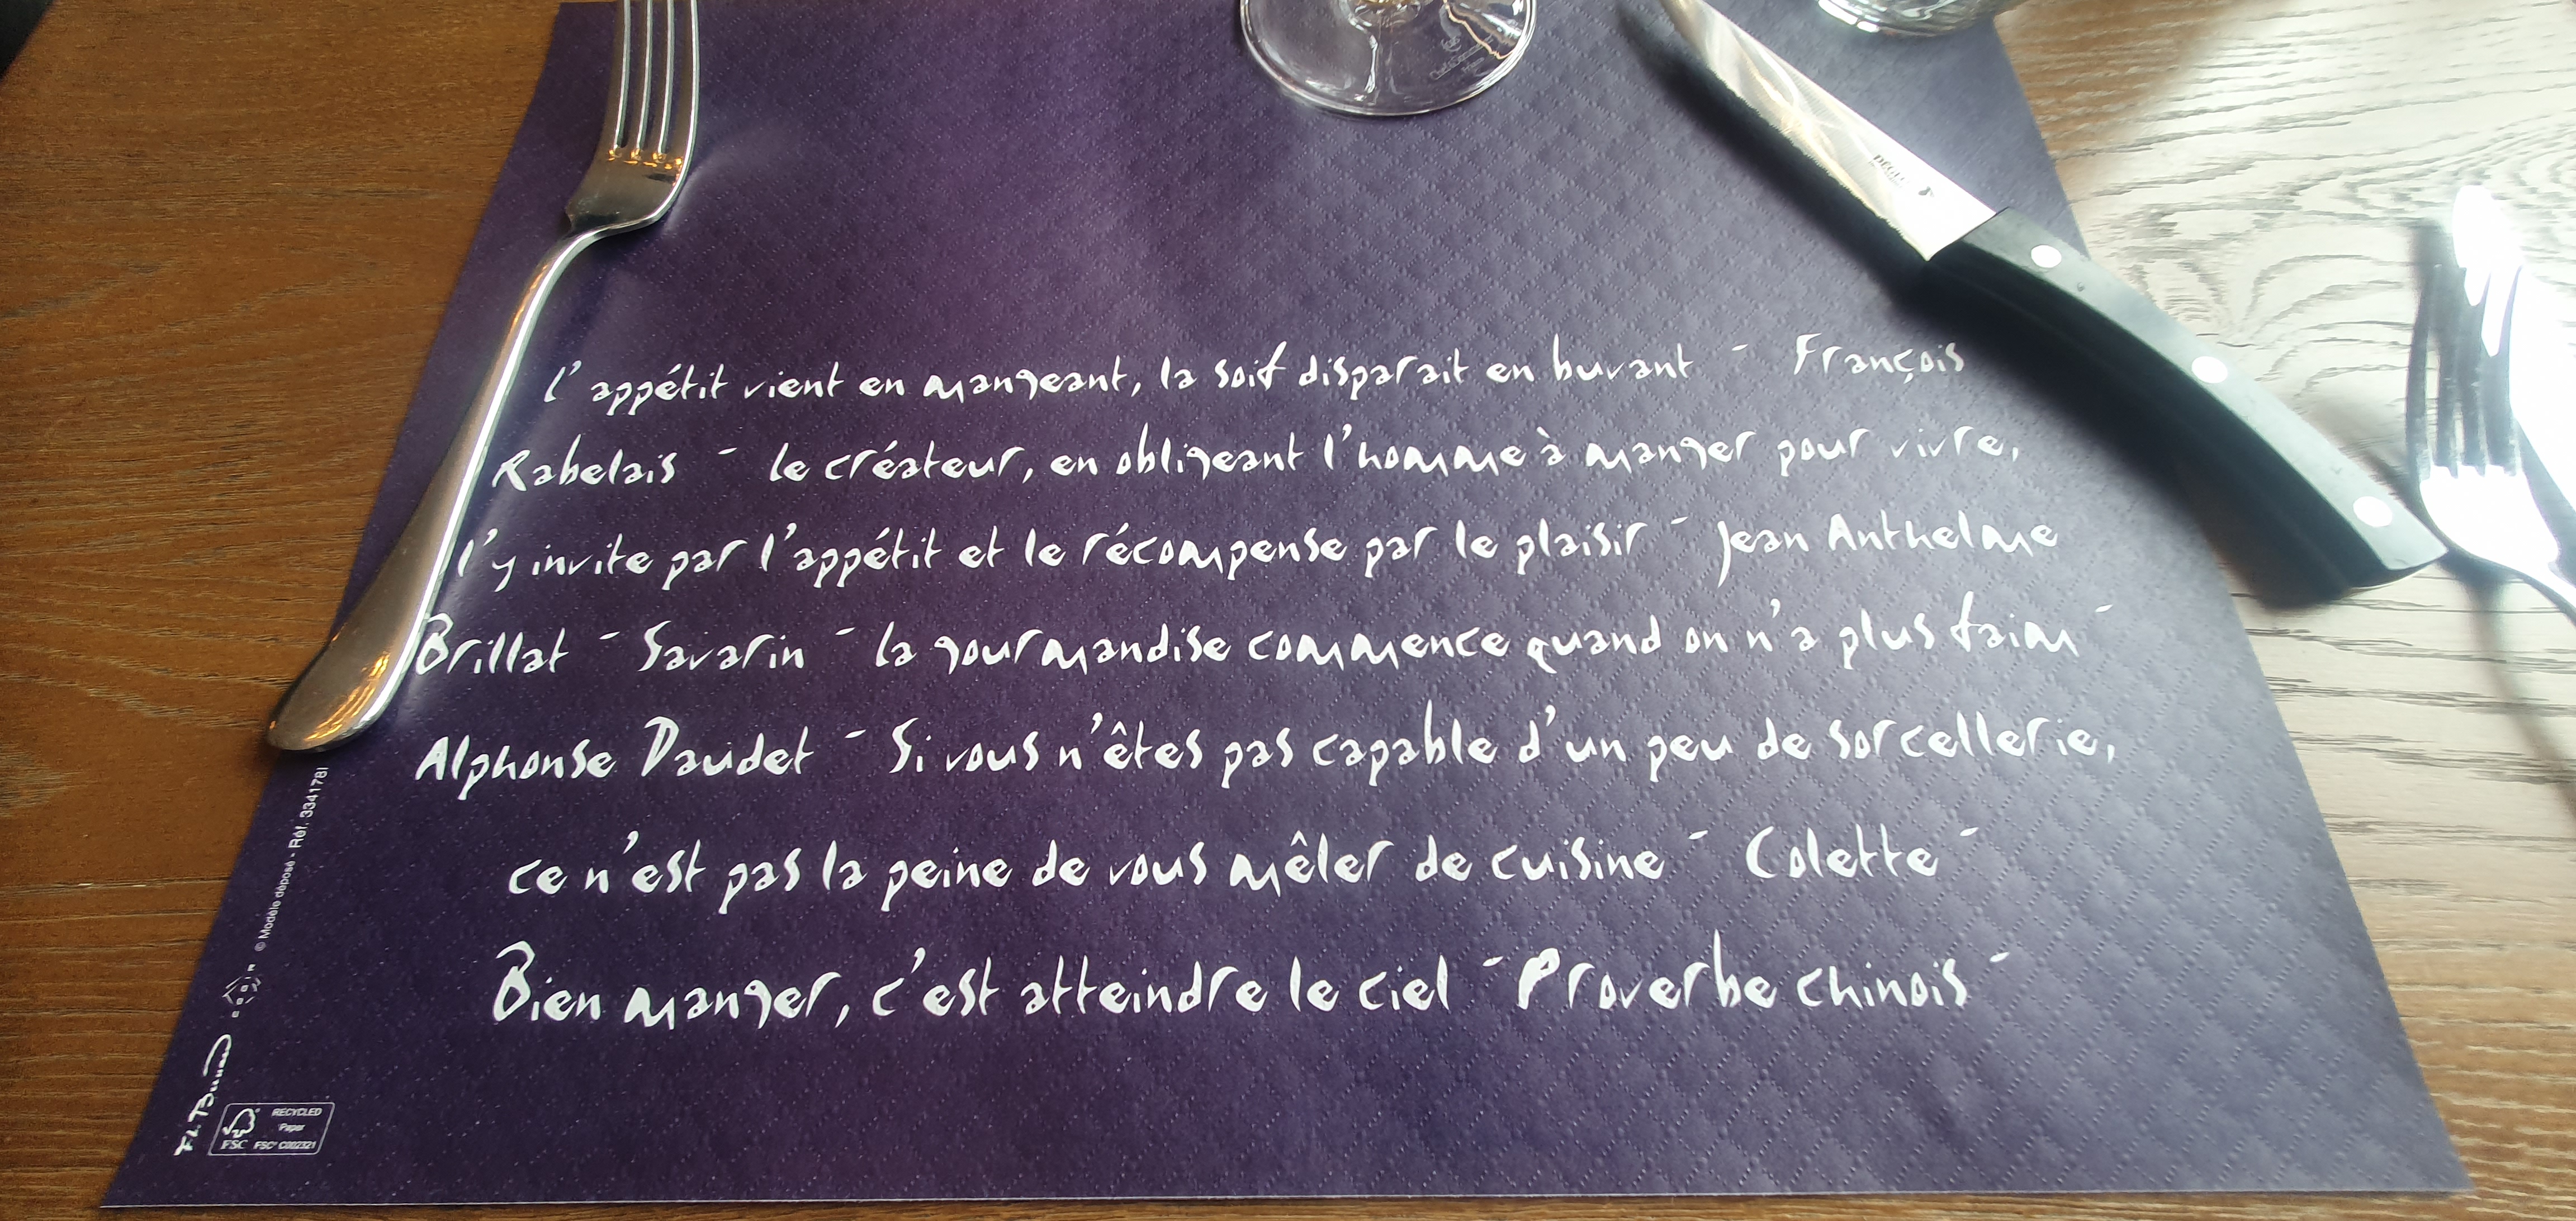 l'appétit vient en mangeant, la soif disparait en buvant - François
Rabelais - le créateur, en obligeant l'homme à manger pour vivre,
l'y invite par l'appétit et le récompense par le plaisir - Jean Anthelme
Brillat - Savarin - la gourmandise commence quand on n'a plus faim -
Alphonse Daudet - Si vous n'êtes pas capable d'un peu de sorcellerie,
ce n'est pas la peine de vous mêler de cuisine - Colette -
Bien manger, c'est atteindre le ciel - Proverbe chinois -
© Modèle déposé - Réf. 334178I
RECYCLED
Paper
FSC FSC® C002321